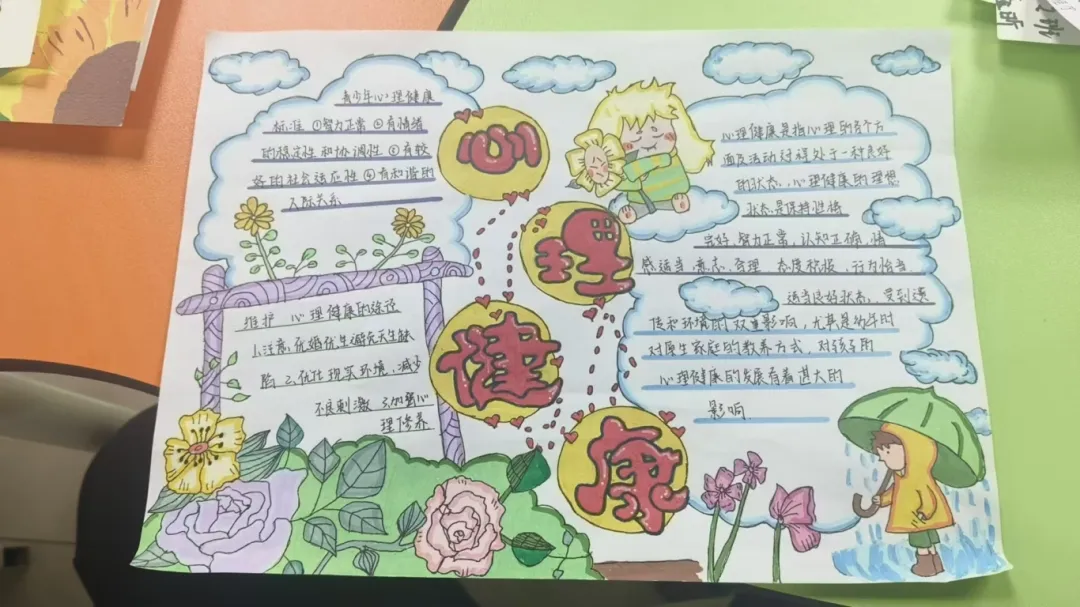 心
理
健
康
青少年心理健康
标准 ①智力正常 ②有情绪
的稳定性和协调性 ③有较
好的社会适应性 ④有和谐的
人际关系
维护 心理健康的途径
1.注意优婚优生避免先天缺
陷 2.优化现实环境，减少
不良刺激 3.加强心
理修养
心理健康是指心理的各个方
面及活动过程处于一种良好
的状态。心理健康的理想
状态是保持性格
完好、智力正常，认知正确，情
感适当，意志，合理，态度积极，行为恰当
适当良好状态。受到遗
传和环境的双重影响，尤其是幼年时
对原生家庭的教养方式，对孩子的
心理健康的发展有着甚大的
影响